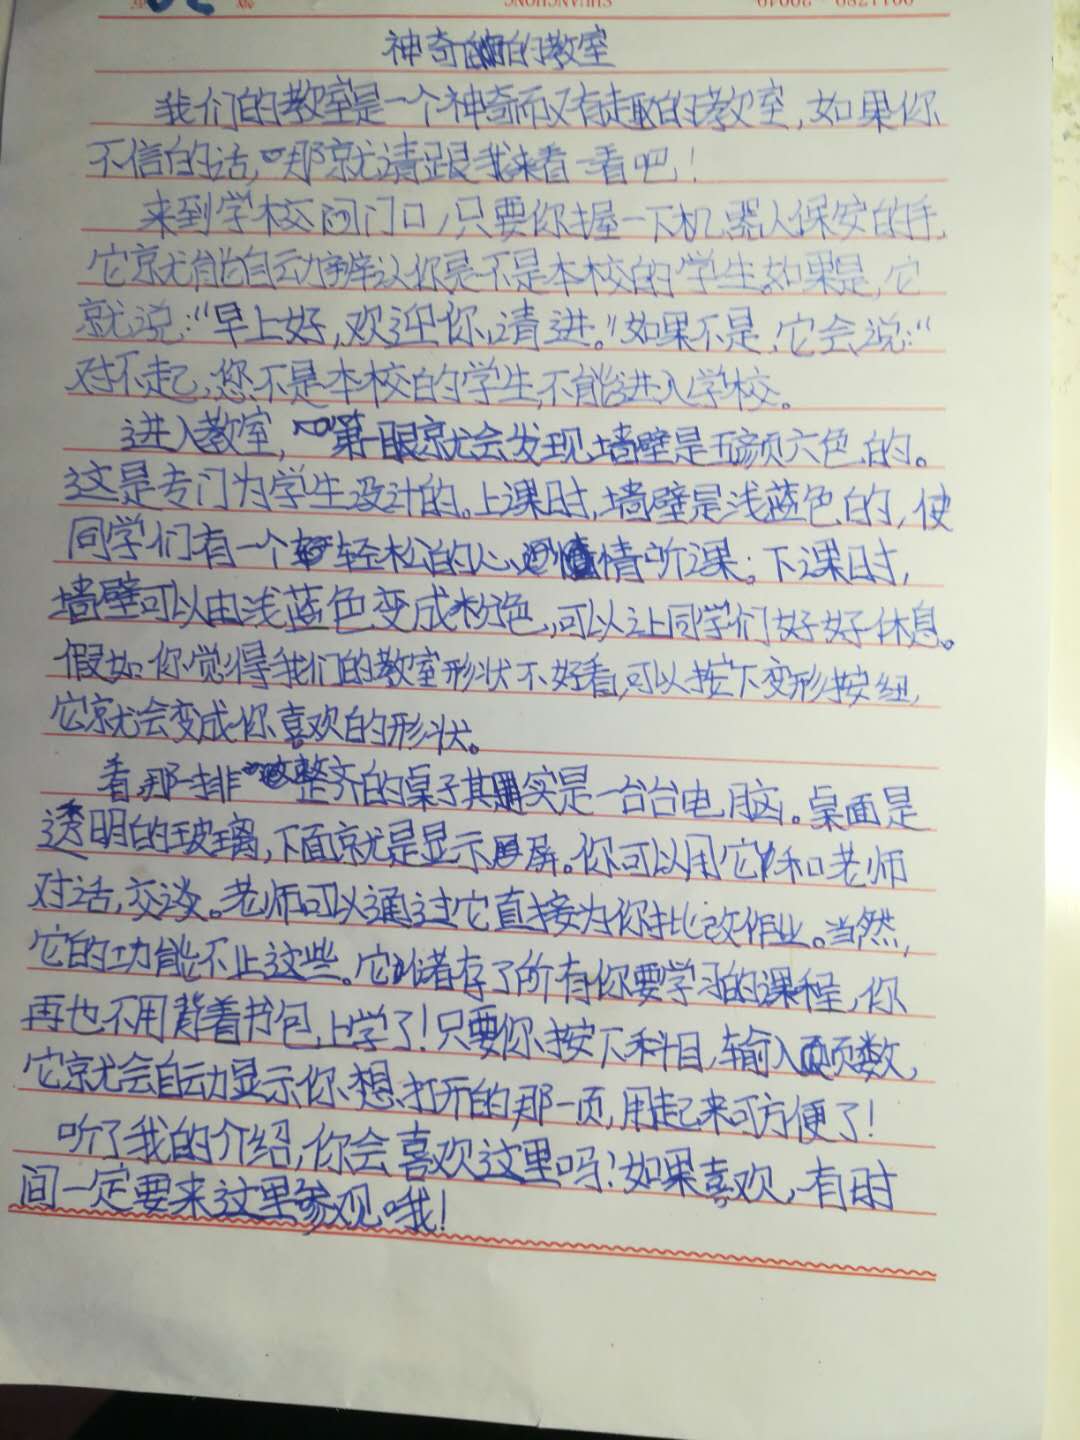 神奇的教室
我们的教室是一个神奇而又有趣的教室,如果你
不信的话,那就请跟我来看一看吧!
来到学校门口,只要你握一下机器人保安的手,
它就能自动辨认你是不是本校的学生。如果是,它
就说:“早上好,欢迎你,请进。”如果不是,它会说:“
对不起,您不是本校的学生,不能进入学校。
进入教室,第一眼就会发现墙壁是五颜六色的。
这是专门为学生设计的。上课时,墙壁是浅蓝色的,使
同学们有一个轻松的心情听课;下课时,
墙壁可以由浅蓝色变成粉色,可以让同学们好好休息。
假如你觉得我们的教室形状不好看,可以按下变形按纽,
它就会变成你喜欢的形状。
看那一排整齐的桌子其实是一台台电脑。桌面是
透明的玻璃,下面就是显示屏。你可以用它和老师
对话,交谈。老师可以通过它直接为你批改作业。当然,
它的功能不止这些。它储存了所有你要学习的课程,你
再也不用背着书包上学了!只要你按下科目,输入页数,
它就会自动显示你想打开的那一页,用起来可方便了!
听了我的介绍,你会喜欢这里吗?如果喜欢,有时
间一定要来这里参观哦!